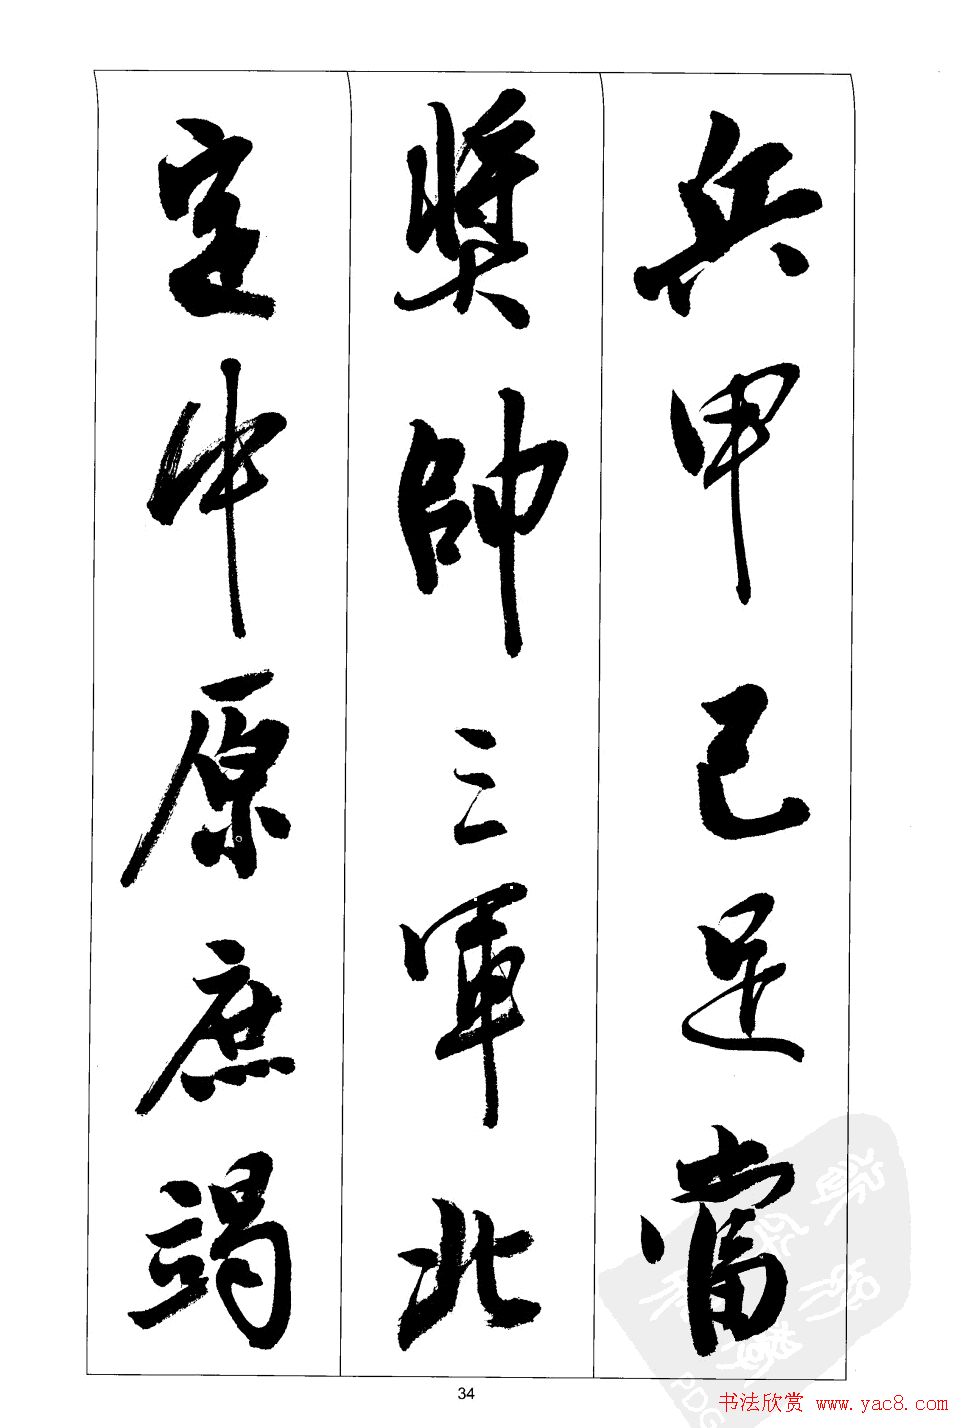 兵甲已足當
奬帥三軍北
定中原庶竭
34
PDG
书法欣赏 www.yac8.com